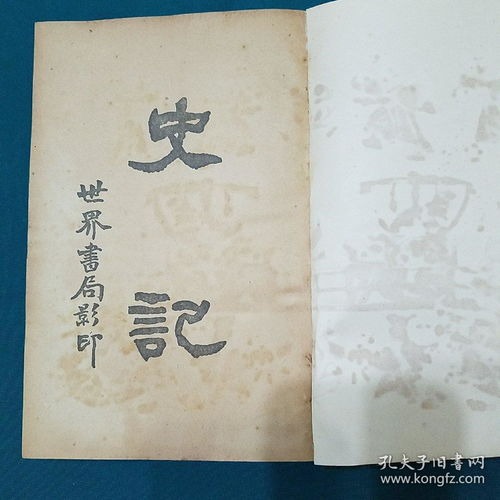 史記
世界書局影印
孔夫子旧书网
www.kongfz.com